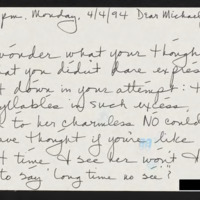 pm. Monday, 4/4/94 Dear Michael
wonder what your though
that you didn't dare expres
t down in your attempt: t
yllables in such excess.
t to her charmless NO could
ave thought if you're like
t time I see her won't I
to say 'long time no see'?